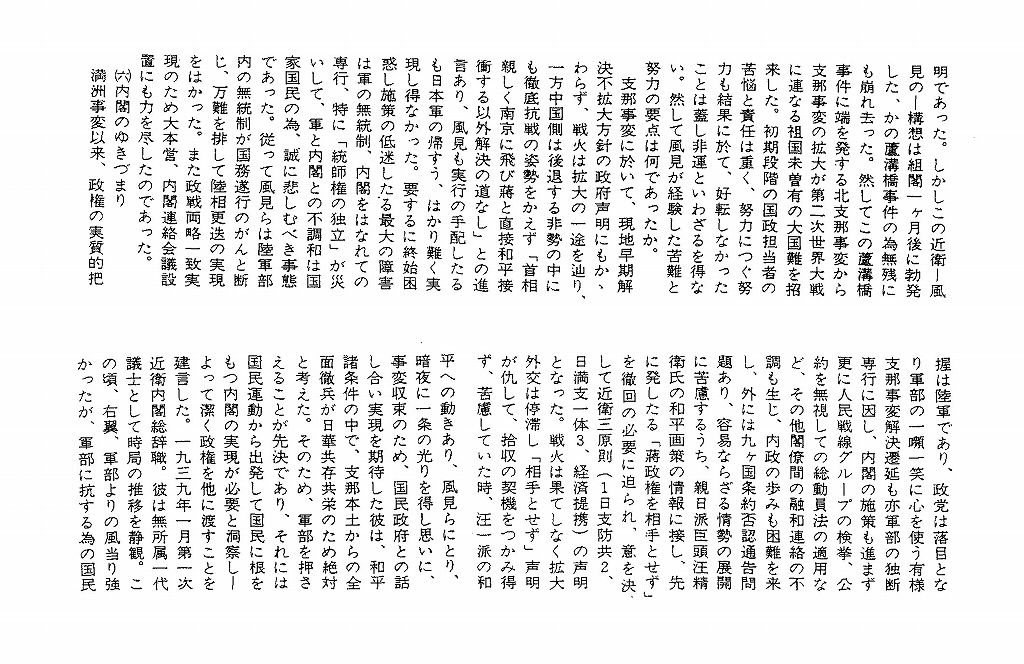 明であった。しかしこの近衛―風
見の―構想は組閣一ヶ月後に勃発
した、かの蘆溝橋事件の為無残に
も崩れ去った。然してこの蘆溝橋
事件に端を発する北支那事変から
支那事変の拡大が第二次世界大戦
に連なる祖国未曽有の大国難を招
来した。初期段階の国政担当者の
苦悩と責任は重く、努力につぐ努
力も結果に於て、好転しなかった
ことは蓋し非運といわざるを得な
い。然して風見が経験した苦難と
努力の要点は何であったか。
支那事変に於いて、現地早期解
決不拡大方針の政府声明にもか丶
わらず、戦火は拡大の一途を辿り、
一方中国側は後退する非勢の中に
も徹底抗戦の姿勢をかえず「首相
親しく南京に飛び蔣と直接和平接
衝する以外解決の道なし」との進
言あり、風見も実行の手配したる
も日本軍の帰すう、はかり難く実
現し得なかった。要するに終始困
惑し施策の低迷したる最大の障害
は軍の無統制、内閣をはなれての
専行、特に「統師権の独立」が災
いして、軍と内閣との不調和は国
家国民の為、誠に悲しむべき事態
であった。従って風見らは陸軍部
内の無統制が国務遂行のがんと断
じ、万難を排して陸相更迭の実現
をはかった。また政戦両略一致実
現のため大本営、内閣連絡会議設
置にも力を尽したのであった。
㈥内閣のゆきづまり
満洲事変以来、政権の実質的把
握は陸軍であり、政党は落目とな
り軍部の一嚬一笑に心を使う有様
支那事変解決遷延も亦軍部の独断
専行に因し、内閣の施策も進まず
更に人民戦線グループの検挙、公
約を無視しての総動員法の適用な
ど、その他閣僚間の融和連絡の不
調も生じ、内政の歩みも困難を来
し、外には九ヶ国条約否認通告問
題あり、容易ならざる情勢の展開
に苦慮するうち、親日派巨頭汪精
衛氏の和平画策の情報に接し、先
に発したる「蔣政権を相手とせず」
を徹回の必要に迫られ、意を決、
して近衛三原則（1日支防共2、
日満支一体3、経済提携）の声明
となった。戦火は果てしなく拡大
外交は停滞し「相手とせず」声明
が仇して、拾収の契機をつかみ得
ず、苦慮していた時、汪一派の和
平への動きあり、風見らにとり、
暗夜に一条の光りを得し思いに、
事変収束のため、国民政府との話
し合い実現を期待した彼は、和平
諸条件の中で、支那本土からの全
面徹兵が日華共存共栄のため絶対
と考えた。そのため、軍部を押さ
えることが先決であり、それには
国民運動から出発して国民に根を
もつ内閣の実現が必要と洞察し―
よって潔く政権を他に渡すことを
建言した。一九三九年一月第一次
近衛内閣総辞職。彼は無所属一代
議士として時局の推移を静観。こ
の頃、右翼、軍部よりの風当り強
かったが、軍部に抗する為の国民